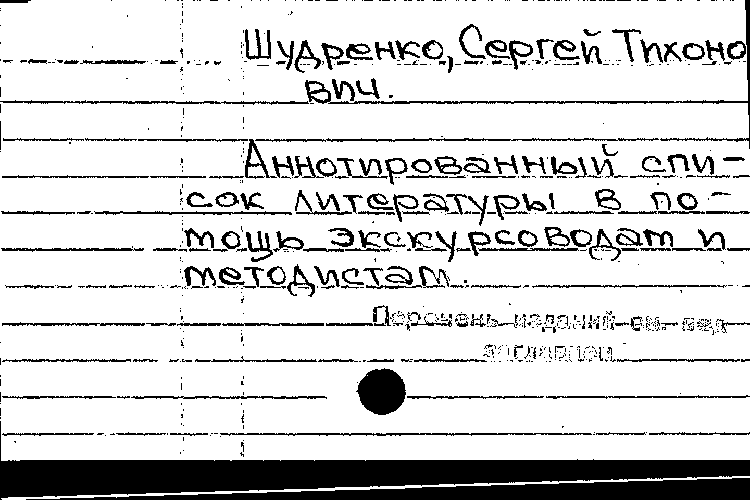 Шудренко, Сергей Тихоно
вич.
Аннотированный спи-
сок литературы в по-
мощь экскурсоводам и
методистам.
Перечень изданий см. под
заглавием